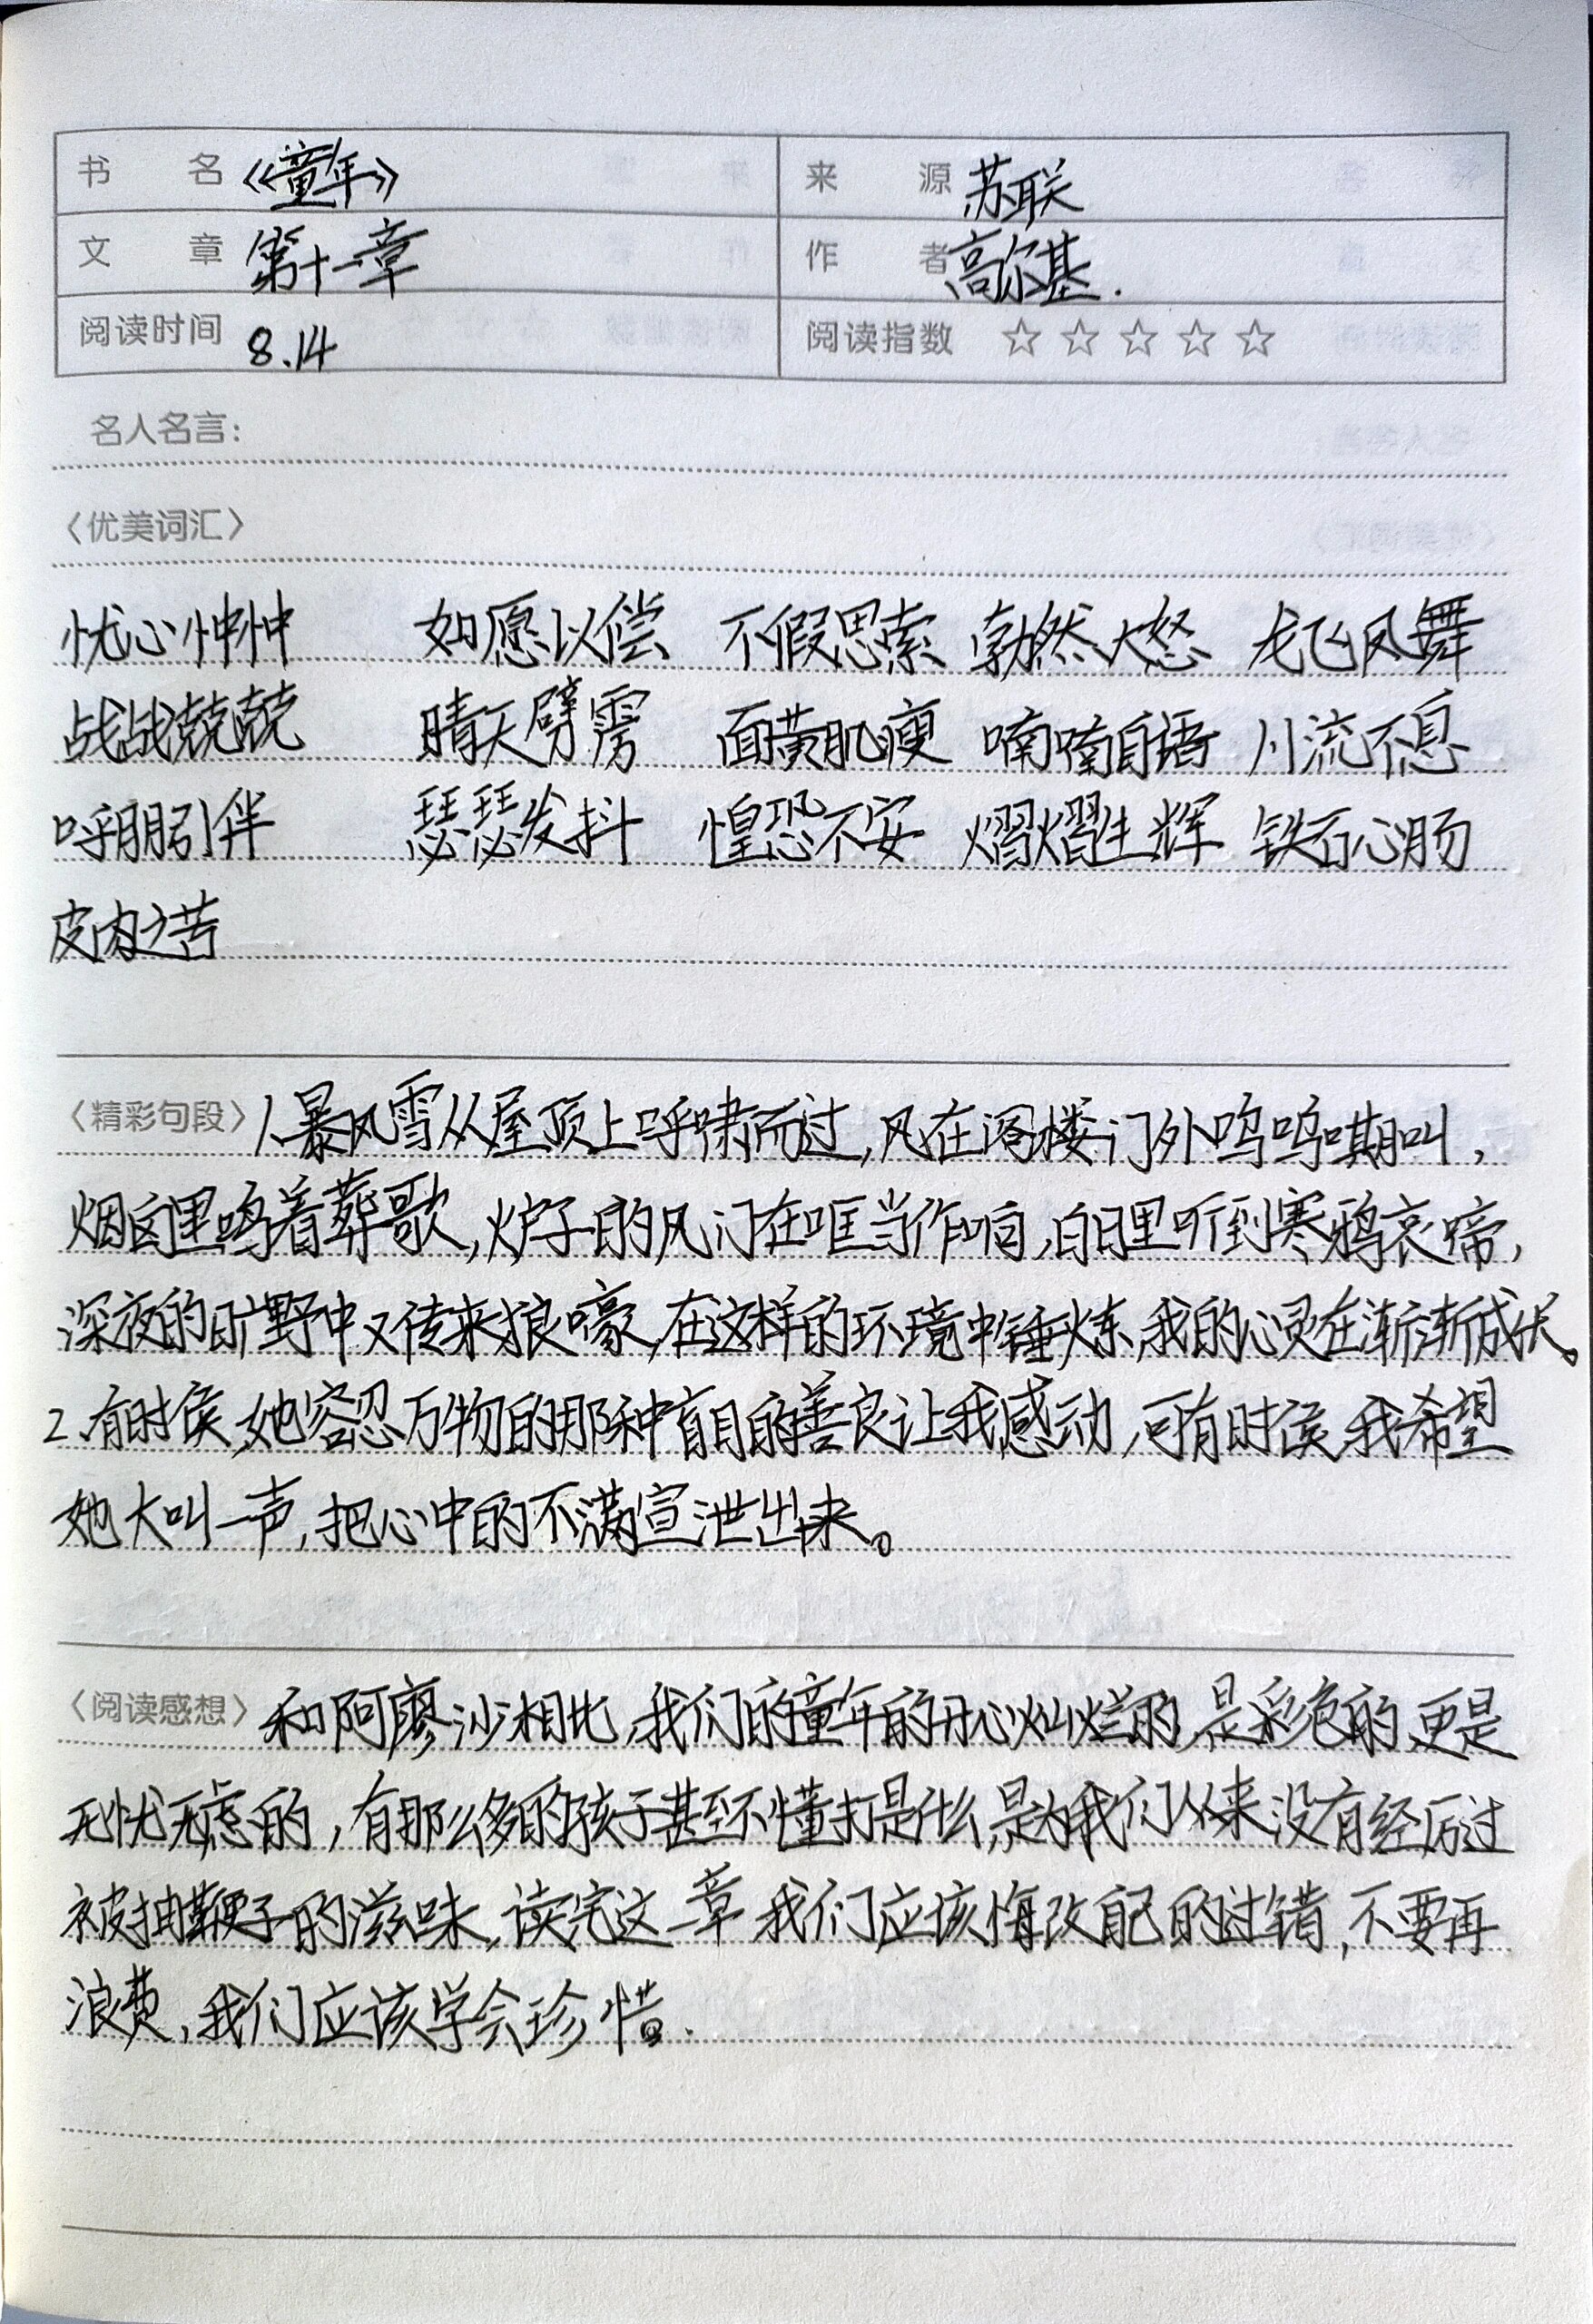 书 名 《童年》 来 源 苏联
文 章 第十一章 作 者 高尔基.
阅读时间 8.14 阅读指数 ☆ ☆ ☆ ☆ ☆
名人名言:
〈优美词汇〉
忧心忡忡 如愿以偿 不假思索 勃然大怒 龙飞凤舞
战战兢兢 晴天劈雳 面黄肌瘦 喃喃自语 川流不息
呼朋引伴 瑟瑟发抖 惶恐不安 熠熠生辉 铁石心肠
皮肉之苦
〈精彩句段〉 1、暴风雪从屋顶上呼啸而过,风在阁楼门外呜呜嘶叫,
烟囱里鸣着葬歌,炉子的风门在哐当作响,白日里听到寒鸦哀啼,
深夜的旷野中又传来狼嚎,在这样的环境中锤炼,我的心灵在渐渐成长。
2、有时侯,她容忍万物的那种盲目的善良让我感动,可有时侯,我希望
她大叫一声,把心中的不满宣泄出来。
〈阅读感想〉 和阿廖沙相比,我们的童年的开心灿烂的,是彩色的,更是
无忧无虑的,有那么多的孩子甚至不懂打是什么,是为我们从来没有经历过
被抽鞭子的滋味,读完这一章我们应该悔改自己的过错,不要再
浪费,我们应该学会珍惜。